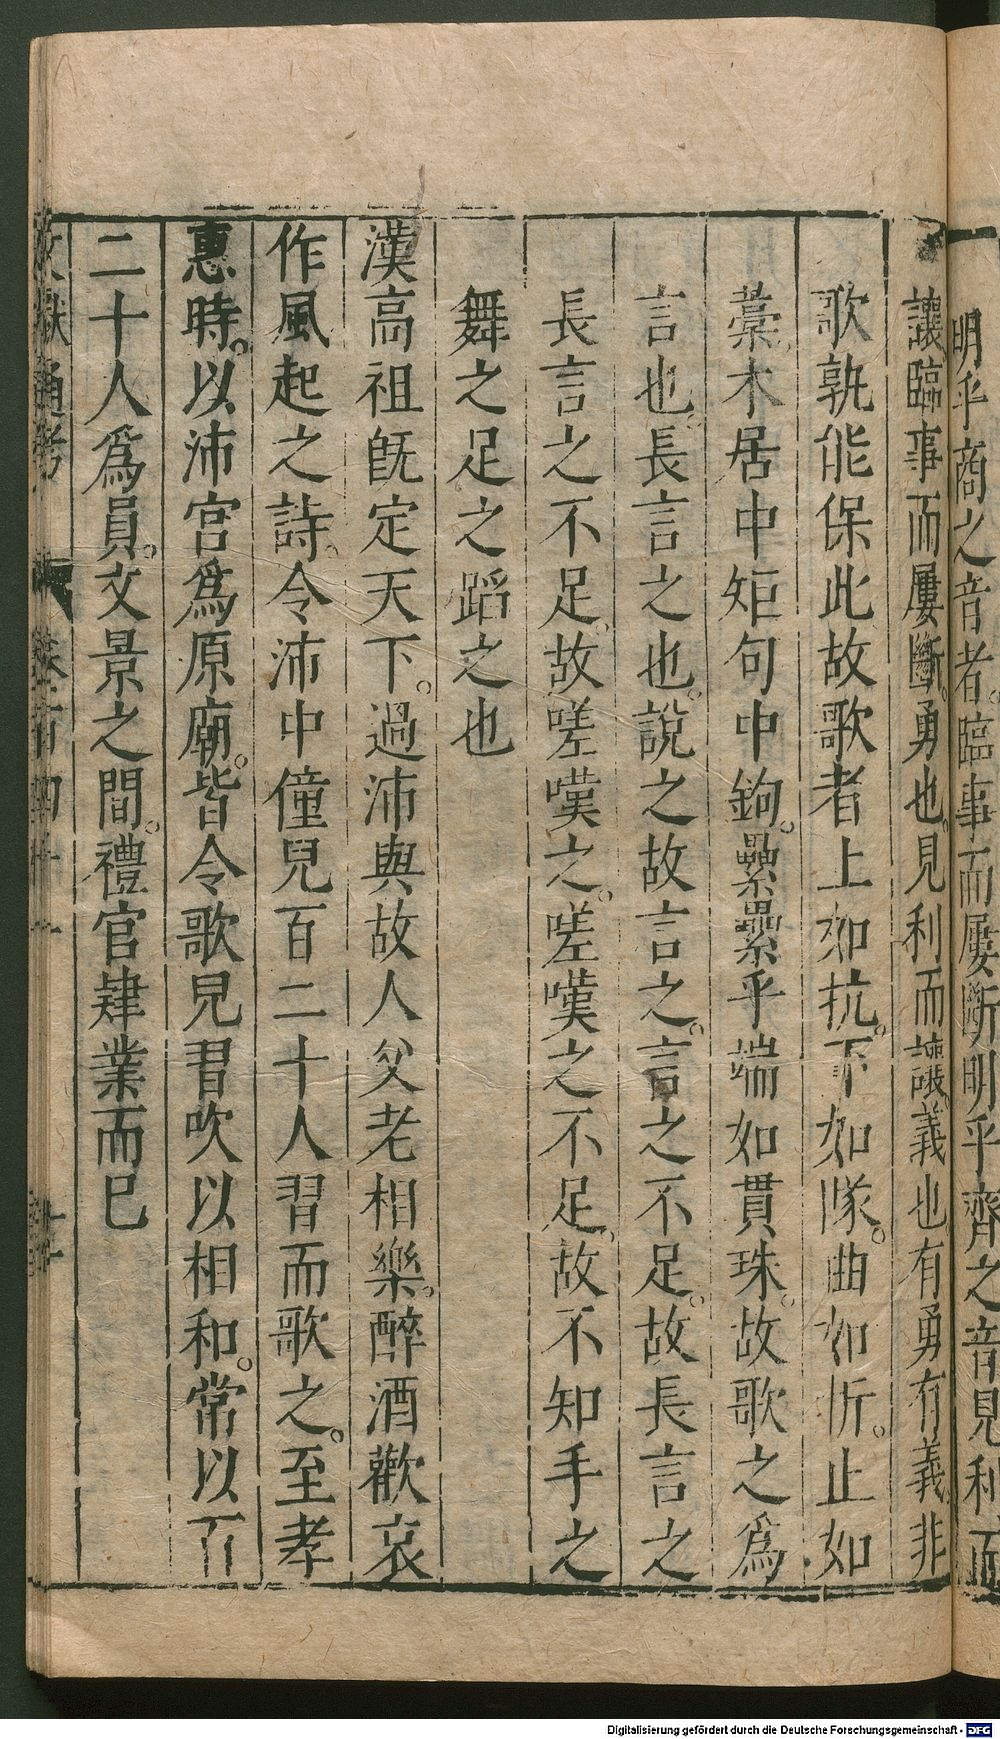 明乎商之音者。臨事而屢斷明乎齊之音見利而
讓臨事而屢斷。勇也。見利而讓。義也有勇有義非
歌孰能保此故歌者上如抗。下如隊。曲如折。止如
藁木居中矩句中鉤。纍纍乎端如貫珠。故歌之爲
言也。長言之也。說之故言之。言之不足。故長言之
長言之不足。故嗟嘆之。嗟嘆之不足。故不知手之
舞之足之蹈之也
漢高祖旣定天下。過沛與故人父老相樂。醉酒歡哀
作風起之詩。令沛中僮兒百二十人習而歌之。至孝
惠時。以沛宮爲原廟。皆令歌兒習吹以相和。常以百
二十人爲員。文景之間。禮官肄業而已
文獻通考 卷百四十一
Digitalisierung gefördert durch die Deutsche Forschungsgemeinschaft - DFG